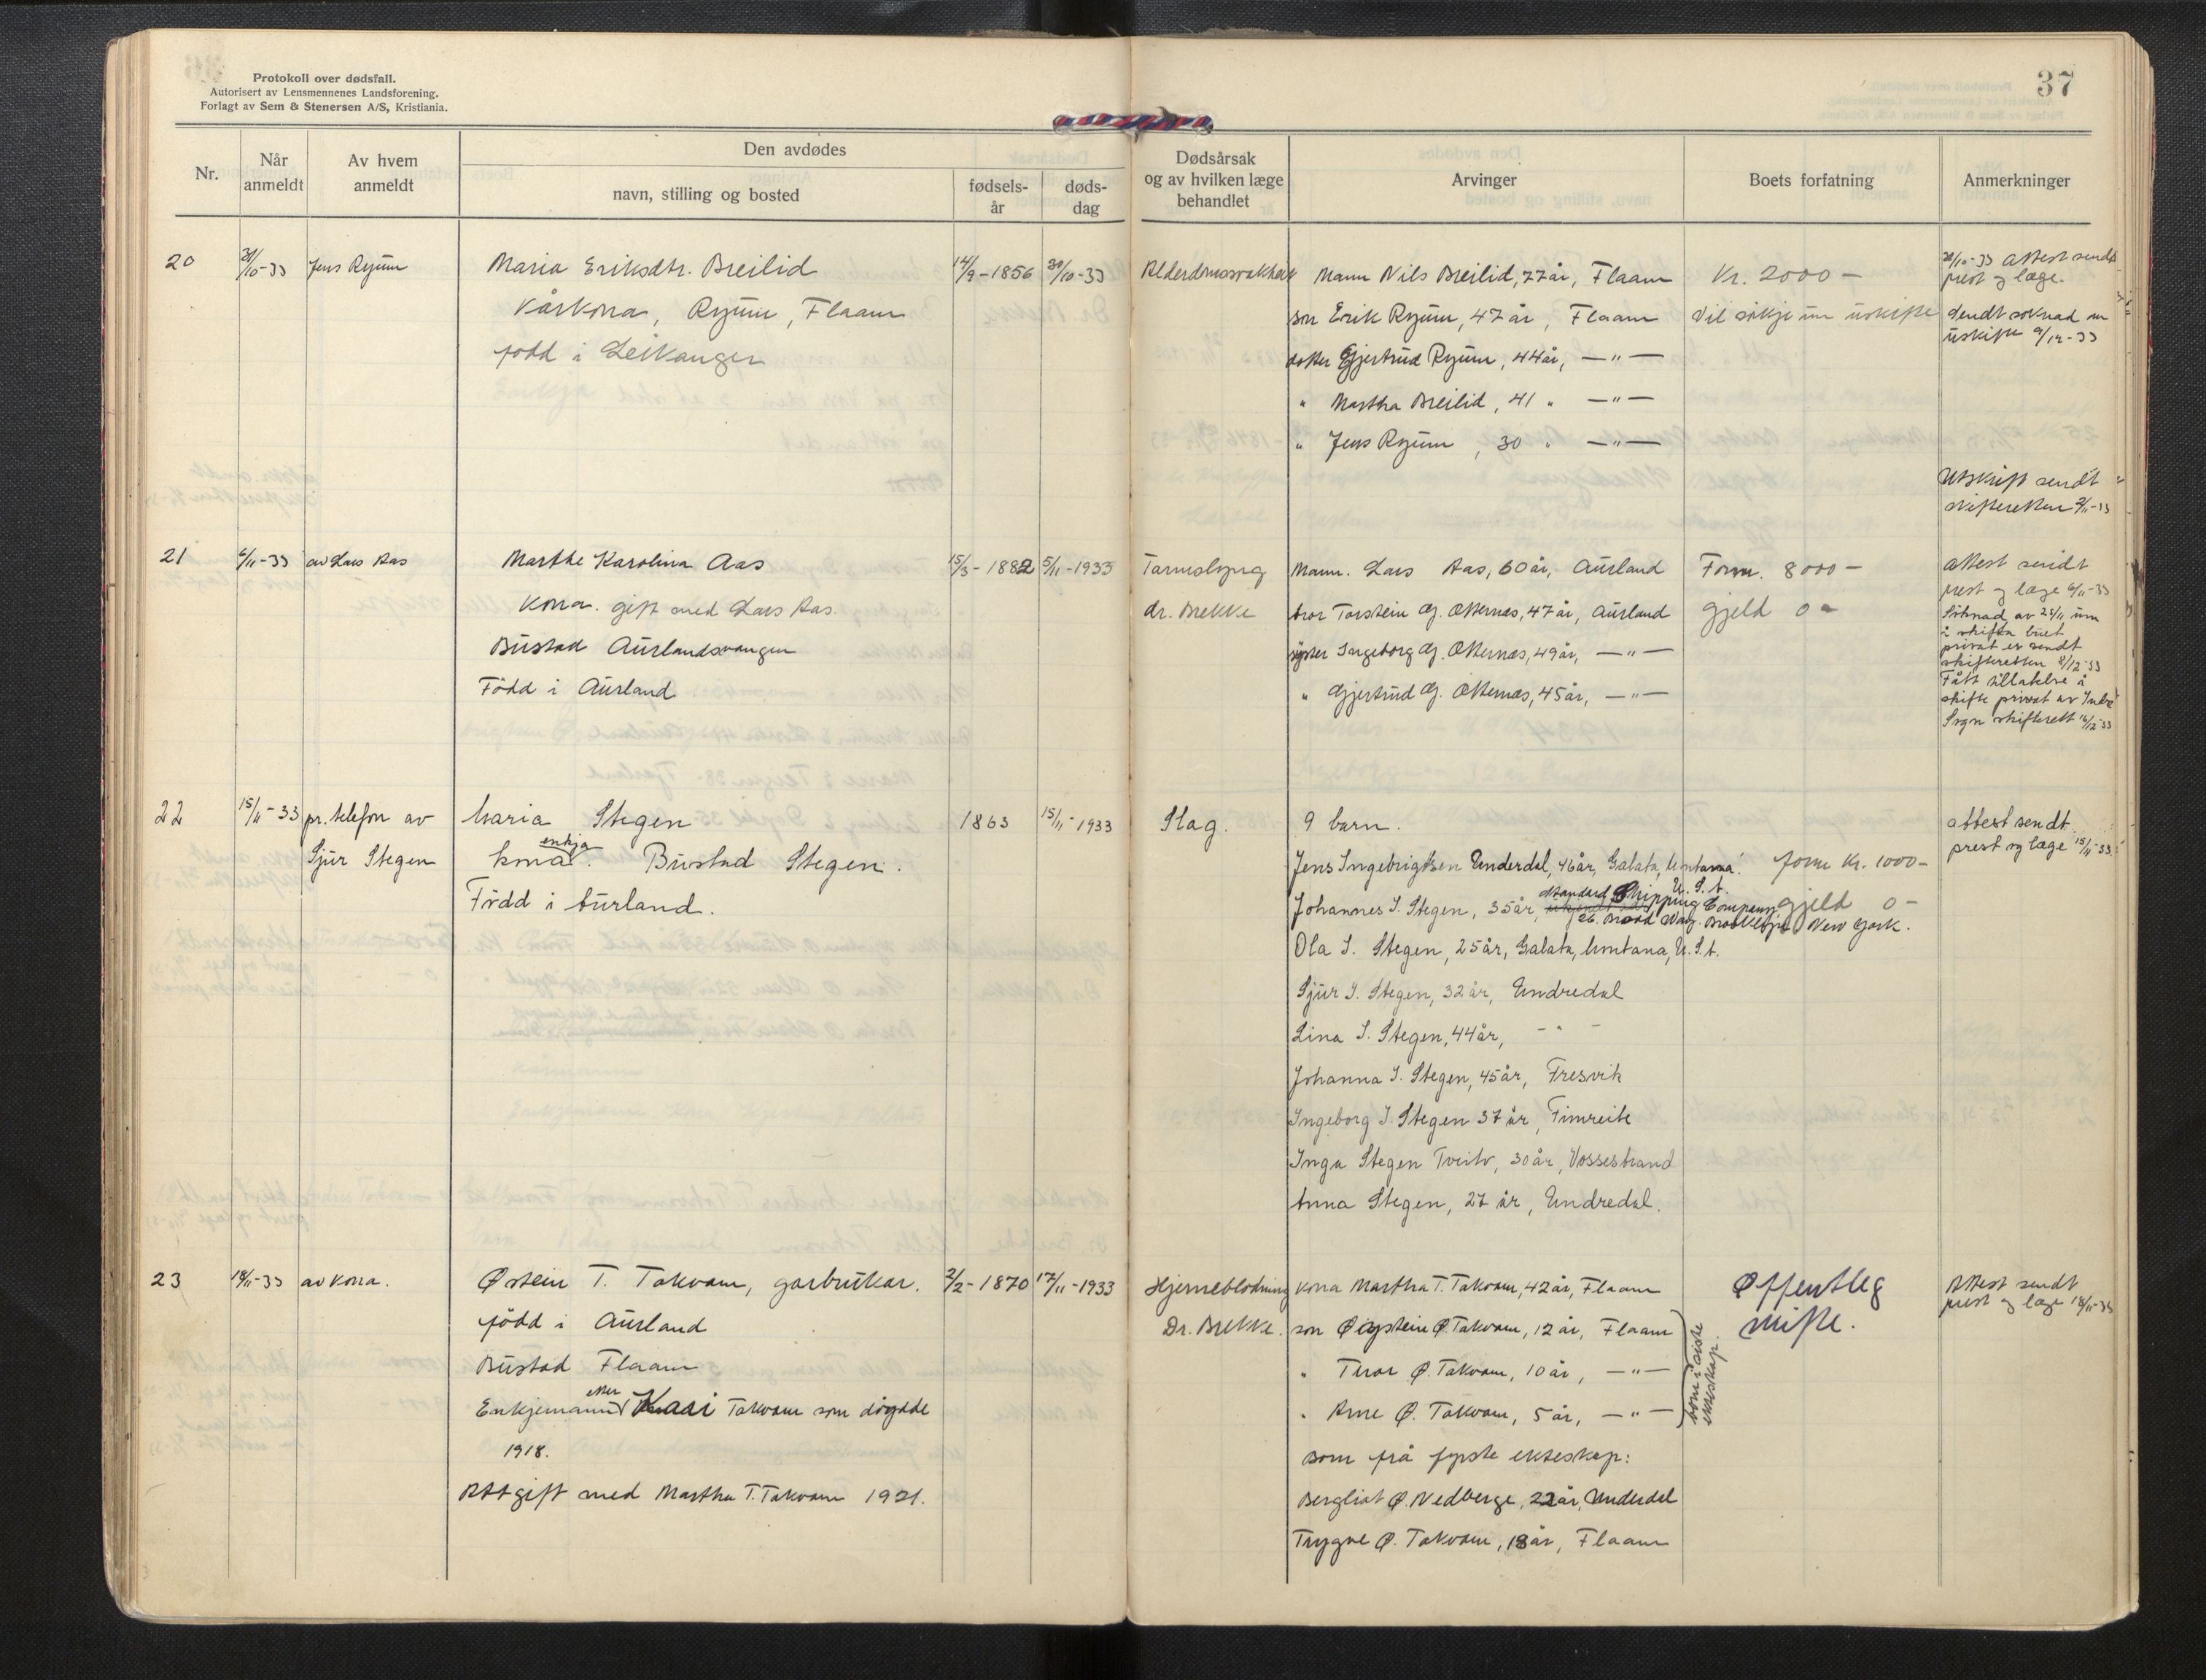 Protokoll over dødsfall.
Autorisert av Lensmennenes Landsforening.
Forlagt av Sem & Stenersen A/S, Kristiania.
37
Nr.
Når anmeldt
Av hvem anmeldt
Den avdødes
navn, stilling og bosted
fødsels-år
døds-dag
Dødsårsak og av hvilken læge behandlet
Arvinger
Boets forfatning
Anmerkninger
20
Jens Ryum
Maria Eriksdtr. Breilid
Kårkona, Ryum, Flaam
född i Leikanger
14/9-1856
30/10-33
Alderdomssvakheit
Mann Nils Breilid, 77 år, Flaam
son Erik Ryum, 47 år, Flaam
dotter Gjertrud Ryum, 44 år, —"—
" Martha Breilid, 41 " —"—
" Jens Ryum, 30 " —"—
Kr. 2000 —
Vil sökje um uskifte
30/10-33 Attest sendt
prest og læge.
Sendt soknad um
uskifte 9/12-33
Utskrift sendt
skifteretten 2/11-33
21
6/11-33
av Lars Aas
Marthe Karolina Aas
Kona. gift med Lars Aas.
Bustad Aurlandsvangen
Född i Aurland
15/3-1882
5/11-1933
Tarmslyng
dr. Brekke
Mann. Lars Aas, 60 år, Aurland
bror Torstein G. Otternæs, 47 år, Aurland
syster Ingeborg G. Otternæs, 49 år, —"—
" Gjertrud G. Otternæs, 45 år, —"—
Form. 8000 —
gjeld 0 —
Attest sendt
prest og læge 6/11-33
Söknad av 25/11 um
å skifta buet
privat er sendt
skifteretten 8/12-33
Fått tillatelse å
skifte privat av Indre
Sogn skifterett 16/12-33
22
15/11-33
pr. telefon av
Sjur Stegen
Maria Stegen
enkja
kona. Bustad Stegen.
Född i Aurland.
1863
15/11-1933
Slag.
9 barn.
Jens Ingebrigtsen Underdal, 46 år, Galata, Montana.
U. S. A.
Standard Shipping Company
Johannes I. Stegen, 35 år,
26 Broad Way. Brooklyn New York.
Ola I. Stegen, 25 år, Galata, Montana, U. S. A.
Sjur I. Stegen, 32 år, Undredal
Lina I. Stegen, 44 år, - " -
Johanna I. Stegen, 45 år, Fresvik
Ingeborg I. Stegen 37 år, Fimreite
Inga Stegen Tveito, 30 år, Vossestrand
Anna Stegen, 27 år, Undredal.
form Kr. 1000-
gjeld 0 -
attest sendt
prest og læge 15/11-33.
23
18/11-33
av kona.
Østein T. Takvam, garbrukar.
född i Aurland
Bustad Flaam
Enkjemann etter Kari Takvam som döydde
1918.
Attgift med Martha T. Takvam 1921.
2/2-1870
17/11-1933
Hjerneblödning
Dr. Brekke.
kona Martha T. Takvam, 42 år, Flaam
son Øystein Ø. Takvam, 12 år, Flaam
" Tivar Ø. Takvam, 10 år, —"—
" Arne Ø. Takvam, 5 år, —"—
born i siste
ekteskap.
Born frå fyrste ekteskap:
Bergliot Ø. Nedberge, 22 år, Underdal
Trygve Ø. Takvam, 18 år, Flaam
Offentleg
skifte.
Attest sendt
prest og læge 18/11-33